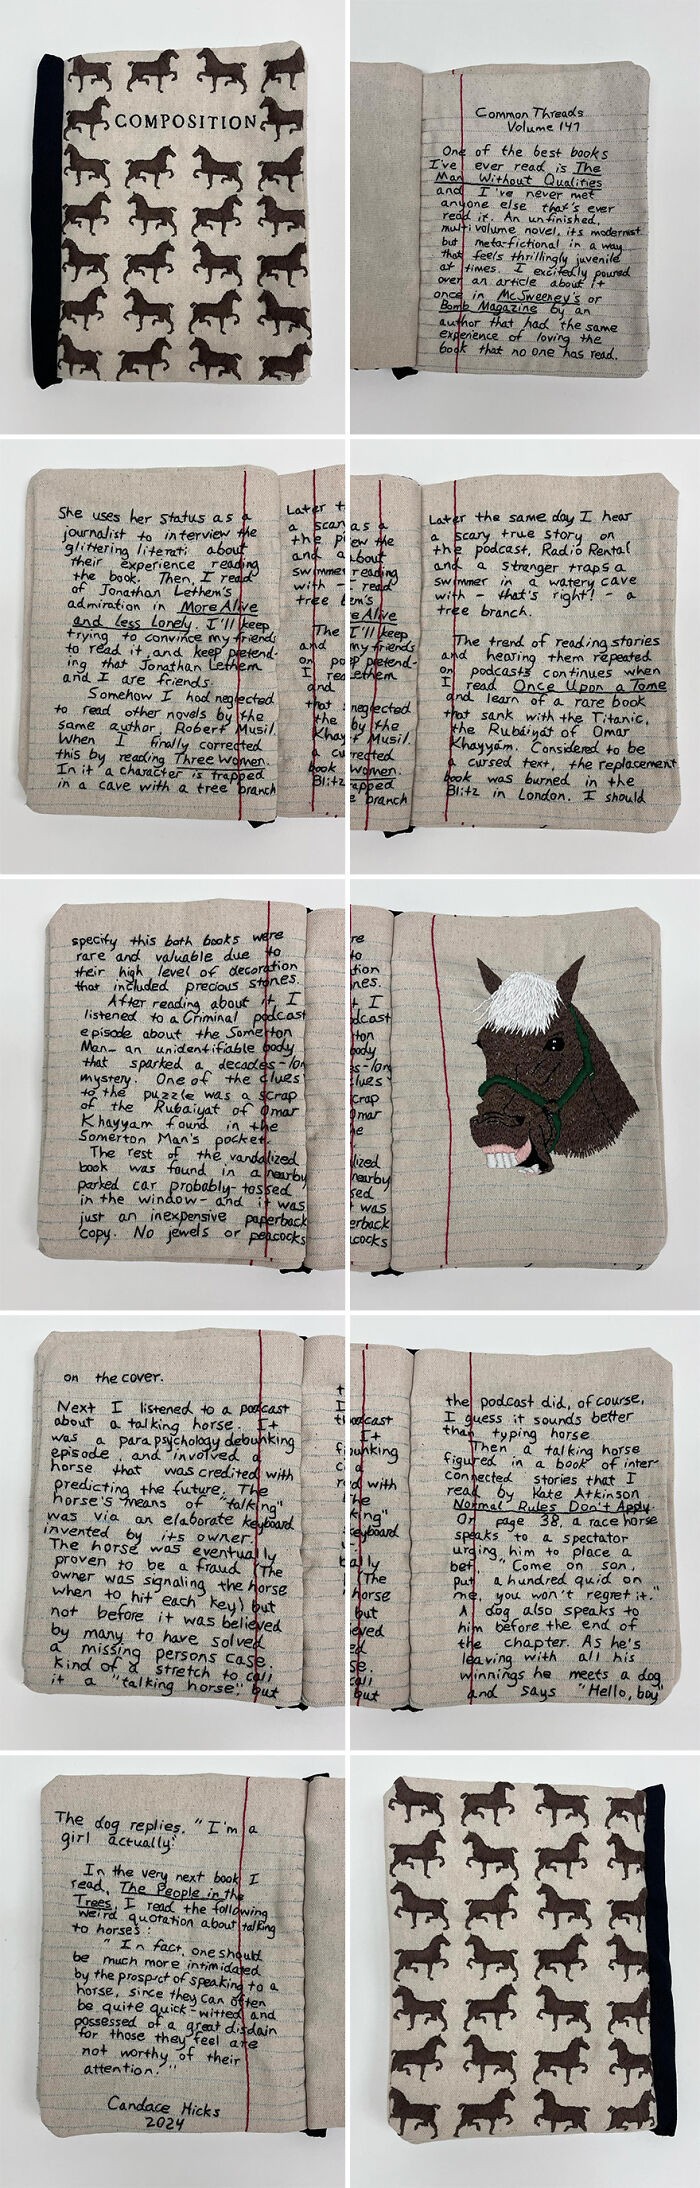 COMPOSITION
Common Threads
Volume 147
One of the best books
I've ever read is The
Man Without Qualities
and I've never met
anyone else that's ever
read it. An unfinished,
multi volume novel, its modernist
but meta-fictional in a way
that feels thrillingly juvenile
at times. I excitedly poured
over an article about it
once in McSweeney's or
Bomb Magazine by an
author that had the same
experience of loving the
book that no one has read.
She uses her status as a
journalist to interview the
glittering literati about
their experience reading
the book. Then, I read
of Jonathan Lethem's
admiration in More Alive
and less Lonely. I'll keep
trying to convince my friends
to read it and keep pretend-
ing that Jonathan Lethem
and I are friends.
Somehow I had neglected
to read other novels by the
same author Robert Musil.
When I finally corrected
this by reading Three Women.
In it a character is trapped
in a cave with a tree branch
Later the same day I hear
a scary true story on
the podcast, Radio Rental
and a stranger traps a
swimmer in a watery cave
with - that's right! - a
tree branch.
The trend of reading stories
and hearing them repeated
on podcasts continues when
I read Once Upon a Tome
and learn of a rare book
that sank with the Titanic,
the Rubáiyát of Omar
Khayyám. Considered to be
a cursed text, the replacement
book was burned in the
Blitz in London. I should
specify this both books were
rare and valuable due to
their high level of decoration
that included precious stones.
After reading about it, I
listened to a Criminal podcast
episode about the Somerton
Man- an unidentifiable body
that sparked a decades-long
mystery. One of the clues
to the puzzle was a scrap
of the Rubaiyat of Omar
Khayyam found in the
Somerton Man's pocket.
The rest of the vandalized
book was found in a nearby
parked car probably tossed
in the window - and it was
just an inexpensive paperback
copy. No jewels or peacocks
on the cover.
Next I listened to a podcast
about a talking horse. It
was a parapsychology debunking
episode and involved a
horse that was credited with
predicting the future. The
horse's means of "talking"
was via an elaborate keyboard
invented by its owner.
The horse was eventually
proven to be a fraud (The
owner was signaling the horse
when to hit each key) but
not before it was believed
by many to have solved
a missing persons case.
Kind of a stretch to call
it a "talking horse", but
the podcast did, of course,
I guess it sounds better
than typing horse.
Then a talking horse
figured in a book of inter-
connected stories that I
read by Kate Atkinson
Normal Rules Don't Apply.
On page 38, a race horse
speaks to a spectator
urging him to place a
bet, "Come on son,
put a hundred quid on
me, you won't regret it."
A dog also speaks to
him before the end of
the chapter. As he's
leaving with all his
winnings he meets a dog
and says "Hello, boy"
The dog replies, "I'm a
girl actually."
In the very next book I
read, The People in the
Trees, I read the following
weird quotation about talking
to horses:
"In fact, one should
be much more intimidated
by the prospect of speaking to a
horse, since they can often
be quite quick-witted and
possessed of a great disdain
for those they feel are
not worthy of their
attention."
Candace Hicks
2024